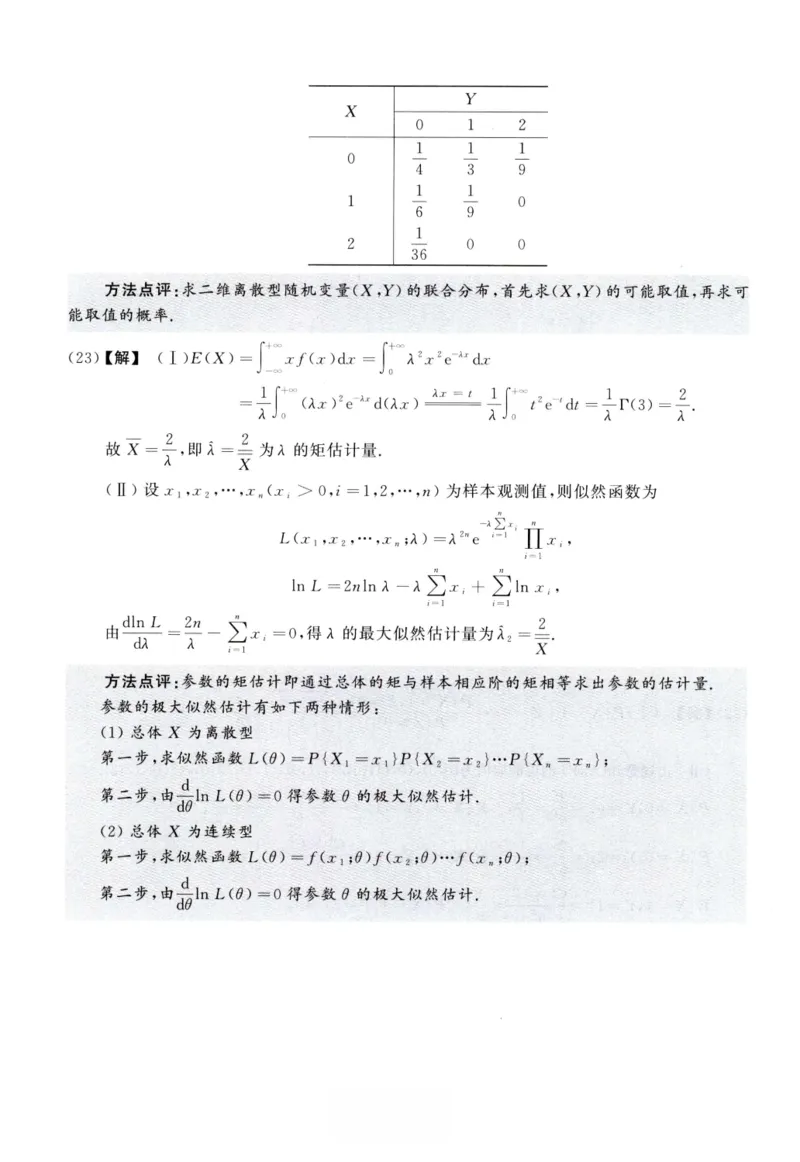 X Y
0 1 2
0 1/4 1/3 1/9
1 1/6 1/9 0
2 1/36 0 0
方法点评:求二维离散型随机变量(X,Y)的联合分布,首先求(X,Y)的可能取值,再求可
能取值的概率.
(23)【解】 (Ⅰ)E(X)=∫_{-∞}^{+∞} xf(x)dx=∫_0^{+∞} λ²x²e^{-λx}dx
=1/λ ∫_0^{+∞} (λx)²e^{-λx}d(λx) \xlongequal{λx=t} 1/λ ∫_0^{+∞} t²e^{-t}dt=1/λ Γ(3)=2/λ.
故 X̄=2/λ,即 λ̂=2/X̄ 为λ 的矩估计量.
(Ⅱ)设 x₁,x₂,…,xₙ(xᵢ>0,i=1,2,…,n)为样本观测值,则似然函数为
L(x₁,x₂,…,xₙ;λ)=λ^{2n}e^{-λ∑_{i=1}^{n}xᵢ}∏_{i=1}^{n}xᵢ,
ln L=2nln λ-λ∑_{i=1}^{n}xᵢ+∑_{i=1}^{n}ln xᵢ,
由 dln L/dλ=2n/λ-∑_{i=1}^{n}xᵢ=0,得λ 的最大似然估计量为λ̂₂=2/X̄.
方法点评:参数的矩估计即通过总体的矩与样本相应阶的矩相等求出参数的估计量.
参数的极大似然估计有如下两种情形:
(1) 总体 X 为离散型
第一步,求似然函数 L(θ)=P{X₁=x₁}P{X₂=x₂}…P{Xₙ=xₙ};
第二步,由 d/dθ ln L(θ)=0 得参数 θ 的极大似然估计.
(2) 总体 X 为连续型
第一步,求似然函数 L(θ)=f(x₁;θ)f(x₂;θ)…f(xₙ;θ);
第二步,由 d/dθ ln L(θ)=0 得参数 θ 的极大似然估计.